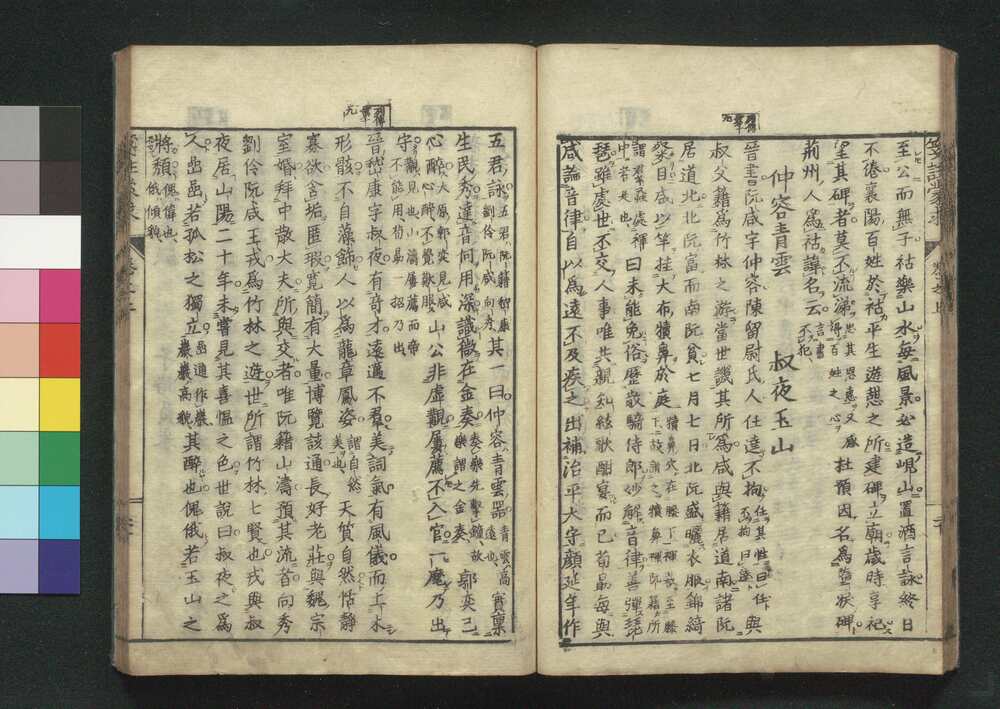 至公而無子祜樂山水每風景必造峴山置酒言詠終日
不倦襄陽百姓於祜平生遊憩之所建碑立廟歲時享祀
望其碑者莫不流涕杜預因名爲墮淚碑
荊州人爲祜諱名云
仲容青雲 叔夜玉山
晉書阮咸字仲容陳留尉氏人任達不拘與
叔父籍爲竹林之游當世譏其所爲咸與籍居道南諸阮
居道北北阮富而南阮貧七月七日北阮盛曬衣服錦綺
粲目咸以竿挂大布犢鼻於庭
曰未能免俗歷散騎侍郎妙解音律善彈琵
琶雖處世不交人事唯共親知絃歌酣宴而已荀勗每與
咸論音律自以爲遠不及疾之出補治平太守顏延年作
五君詠五君阮籍嵆康劉伶阮咸向秀其一曰仲容青雲器實稟
生民秀達音何用深識微在金奏郭奕已
心醉山公非虛觀屢薦不入官一麾乃出
守
晉嵆康字叔夜有奇才遠邁不羣美詞氣有風儀而土木
形骸不自藻飾人以爲龍章鳳姿天質自然恬靜
寡欲含垢匿瑕寬簡有大量博覽該通長好老莊與魏宗
室婚拜中散大夫所與交者唯阮籍山濤預其流者向秀
劉伶阮咸王戎爲竹林之遊世所謂竹林七賢也戎與叔
夜居山陽二十年未嘗見其喜慍之色世說曰叔夜之爲
人嵒嵒若孤松之獨立嵒通作巖巖巖高貌其醉也傀俄若玉山之
將頹傀偉也俄傾貌